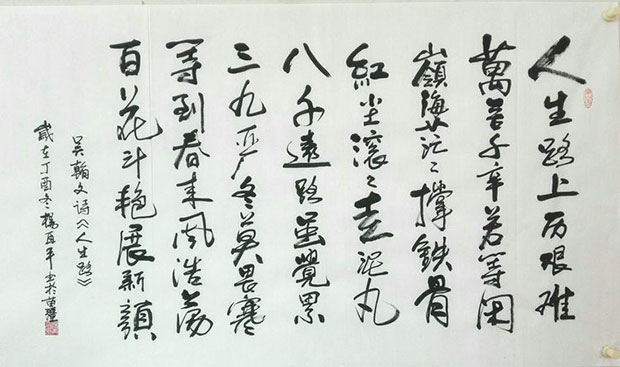 人生路上历艰难
萬苦千辛若等闲
嶺海茫〻撑鐵骨
紅尘滚〻走泥丸
八千遠路虽覺累
三九严冬莫畏寒
等到春来風浩荡
百花斗艳展新顏
吴翰文诗《人生路》
歲在丁酉冬楊百平书於